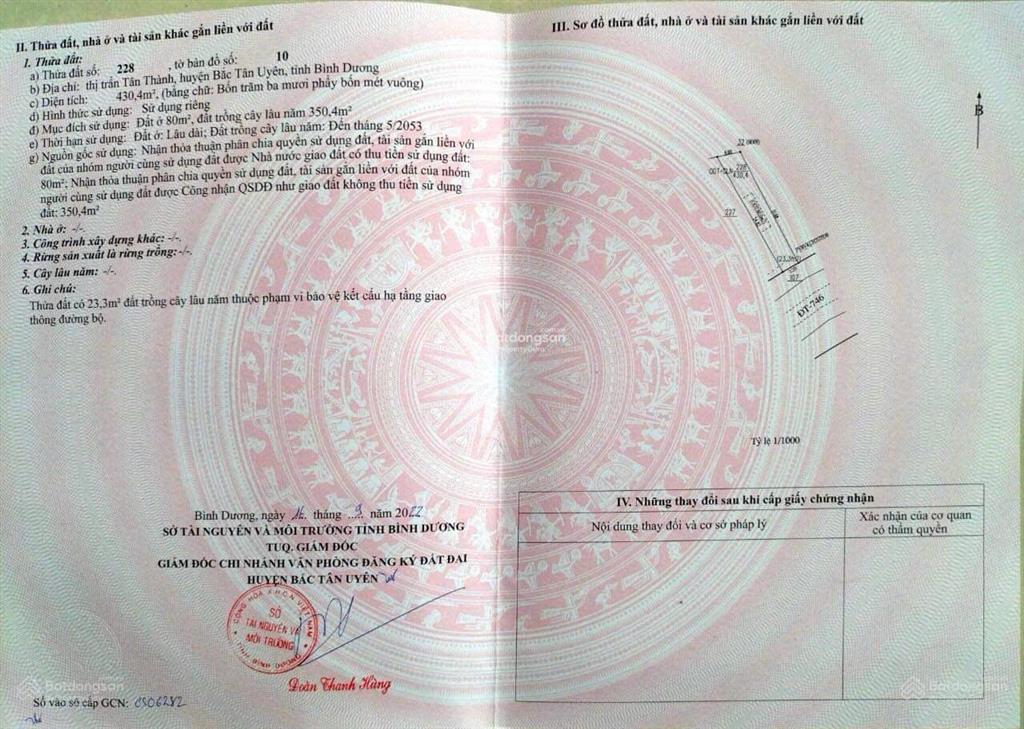 II. Thửa đất, nhà ở và tài sản khác gắn liền với đất
1. Thửa đất:
a) Thửa đất số: 228 , tờ bản đồ số: 10
b) Địa chỉ: thị trấn Tân Thành, huyện Bắc Tân Uyên, tỉnh Bình Dương
c) Diện tích: 430,4m², (bằng chữ: Bốn trăm ba mươi phẩy bốn mét vuông)
d) Hình thức sử dụng: Sử dụng riêng
đ) Mục đích sử dụng: Đất ở 80m², đất trồng cây lâu năm 350,4m²
e) Thời hạn sử dụng: Đất ở: Lâu dài; Đất trồng cây lâu năm: Đến tháng 5/2053
g) Nguồn gốc sử dụng: Nhận thỏa thuận phân chia quyền sử dụng đất, tài sản gắn liền với
đất của nhóm người cùng sử dụng đất được Nhà nước giao đất có thu tiền sử dụng đất:
80m²; Nhận thỏa thuận phân chia quyền sử dụng đất, tài sản gắn liền với đất của nhóm
người cùng sử dụng đất được Công nhận QSDĐ như giao đất không thu tiền sử dụng
đất: 350,4m²
2. Nhà ở: -/-.
3. Công trình xây dựng khác: -/-.
4. Rừng sản xuất là rừng trồng: -/-.
5. Cây lâu năm: -/-.
6. Ghi chú:
Thửa đất có 23,3m² đất trồng cây lâu năm thuộc phạm vi bảo vệ kết cấu hạ tầng giao
thông đường bộ.
Bình Dương, ngày 16 tháng 9 năm 2022
SỞ TÀI NGUYÊN VÀ MÔI TRƯỜNG TỈNH BÌNH DƯƠNG
TUQ. GIÁM ĐỐC
GIÁM ĐỐC CHI NHÁNH VĂN PHÒNG ĐĂNG KÝ ĐẤT ĐAI
HUYỆN BẮC TÂN UYÊN
CỘNG HÒA X.H.C.N. VIỆT NAM
SỞ
TÀI NGUYÊN VÀ
MÔI TRƯỜNG
TỈNH BÌNH DƯƠNG
Đoàn Thanh Hùng
Số vào sổ cấp GCN: CS06282
III. Sơ đồ thửa đất, nhà ở và tài sản khác gắn liền với đất
B
32
228
430,4
227
307
ĐT-746
Tỷ lệ 1/1000
IV. Những thay đổi sau khi cấp giấy chứng nhận
Nội dung thay đổi và cơ sở pháp lý
Xác nhận của cơ quan
có thẩm quyền
Batdongsan
Batdongsan
Batdongsan